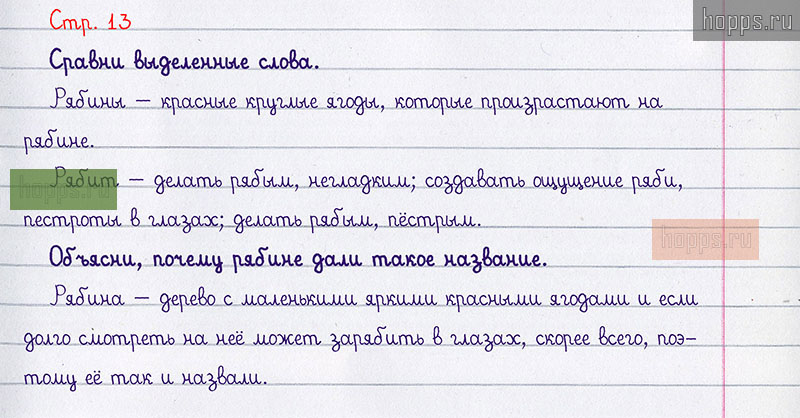 Стр. 13
hopps.ru
Сравни выделенные слова.
Рябины — красные круглые ягоды, которые произрастают на
рябине.
Рябит — делать рябым, негладким; создавать ощущение ряби,
hopps.ru
пестроты в глазах; делать рябым, пёстрым.
hopps.ru
Объясни, почему рябине дали такое название.
Рябина — дерево с маленькими яркими красными ягодами и если
долго смотреть на неё может зарябить в глазах, скорее всего, поэ-
тому её так и назвали.